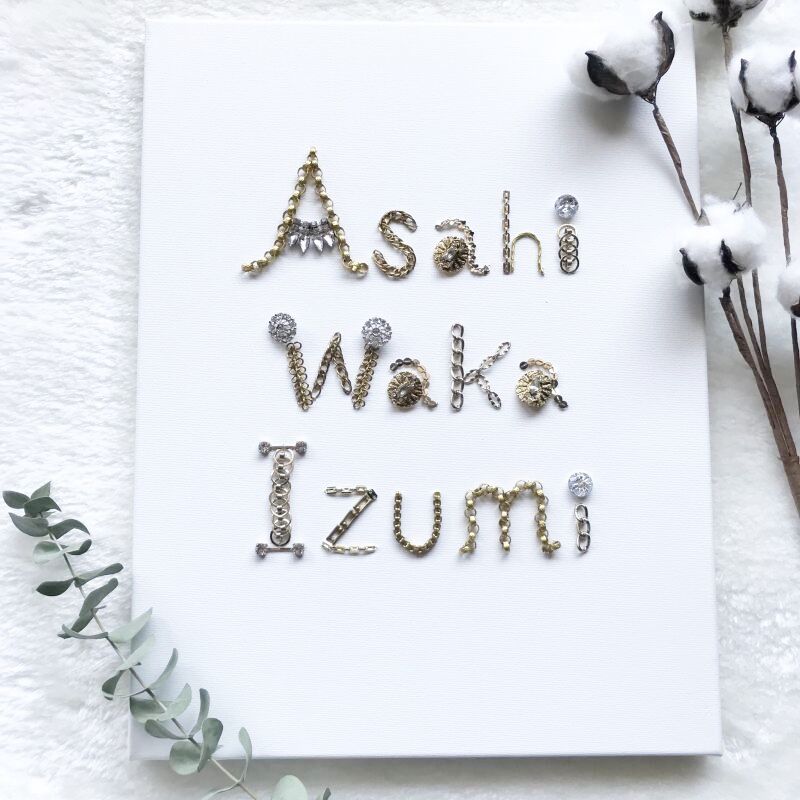 Asahi
Waka
Izumi